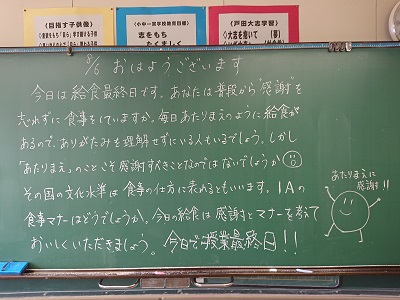 《目指す子供像》
《小中一貫学校教育目標》
志をもち
たくましく
《戸田大志学習》
大志を抱いて (夢)
8/6 おはようございます
今日は給食最終日です。あなたは普段から"感謝"を
忘れずに食事をしていますか。毎日あたりまえのように給食が
あるので、ありがたみも理解せずにいる人もいるでしょう。しかし
「あたりまえ」のことこそ感謝すべきことなのではないでしょうか
その国の文化水準は食事の仕方に表れるともいいます。1Aの
食事マナーはどうでしょうか。今日の給食は感謝とマナーを考えて
おいしくいただきましょう。今日で授業最終日!!
あたりまえに
感謝!!